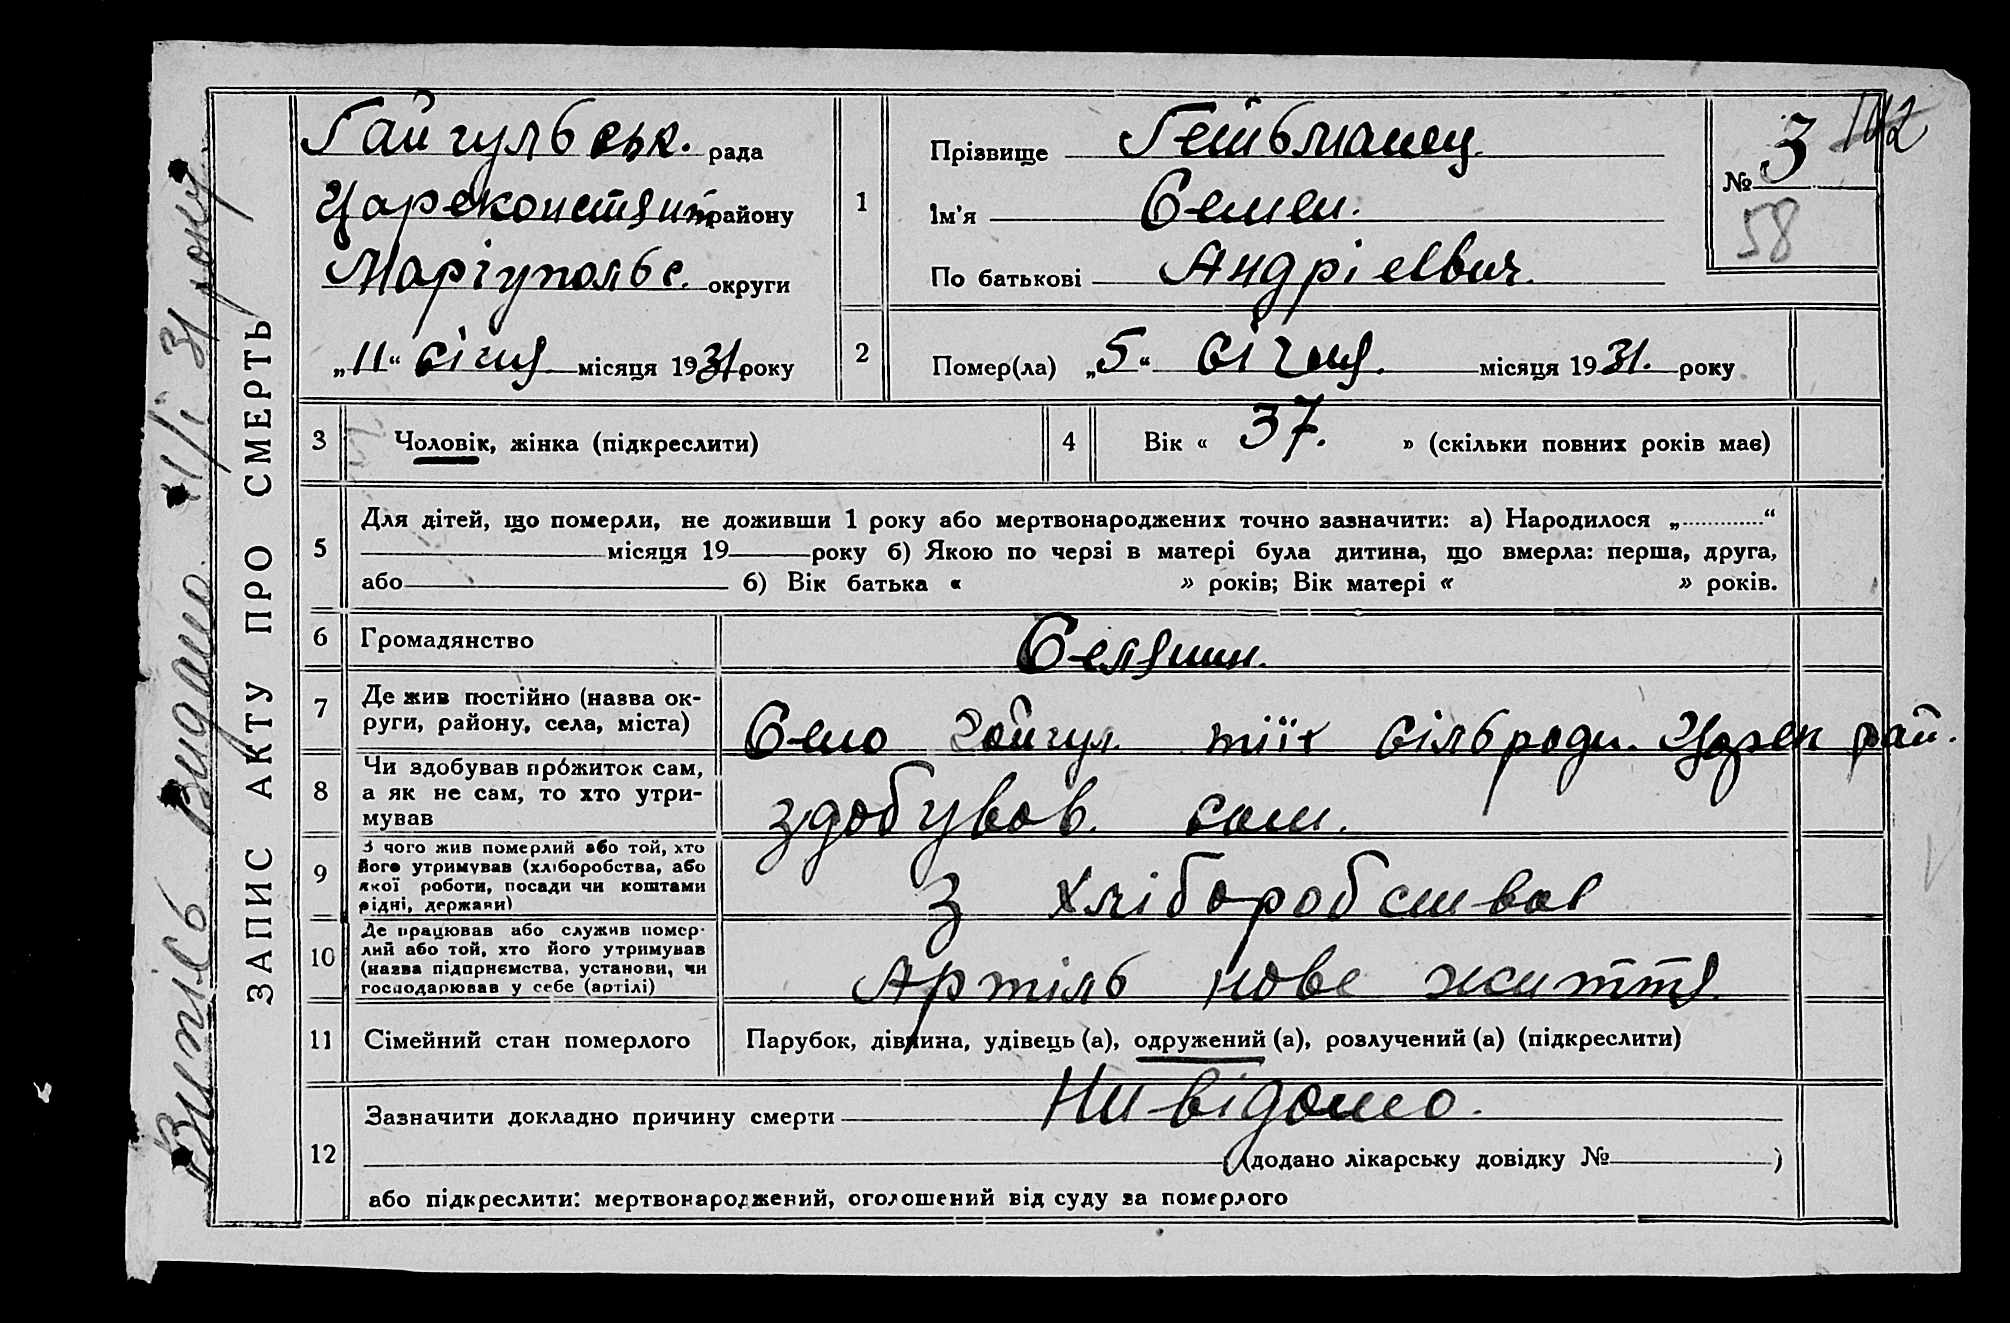 Гайгульськ. рада
Цареконстянт району
Маріупольс. округи
„11“ січня місяця 1931 року
1
Прізвище Гетьманец
Ім'я Семен.
По батькові Андрієвич.
№ 3
58
2
Помер(ла) „5“ січня. місяця 1931. року
3 Чоловік, жінка (підкреслити)
4 Вік « 37. » (скільки повних років має)
5
Для дітей, що померли, не доживши 1 року або мертвонароджених точно зазначити: а) Народилося „.............“
місяця 19 року б) Якою по черзі в матері була дитина, що вмерла: перша, друга,
або б) Вік батька « » років; Вік матері « » років.
6 Громадянство Селянин.
7
Де жив постійно (назва ок-
руги, району, села, міста)
Село Гайгул. тіїх сільради. рай.
8
Чи здобував прожиток сам,
а як не сам, то хто утри-
мував
здобував. сам.
9
З чого жив померлий або той, хто
його утримував (хліборобства, або
якої роботи, посади чи коштами
рідні, держави)
З хліборобства
10
Де працював або служив помер-
лий або той, хто його утримував
(назва підприємства, установи, чи
господарював у себе (артілі)
Артіль нове життя.
11 Сімейний стан померлого
Парубок, дівчина, удівець (а), одружений (а), розлучений (а) (підкреслити)
12
Зазначити докладно причину смерти Нивідомо.
(додано лікарську довідку № )
або підкреслити: мертвонароджений, оголошений від суду за померлого
ЗАПИС АКТУ ПРО СМЕРТЬ
Витпісь видано. 11/I 31 року